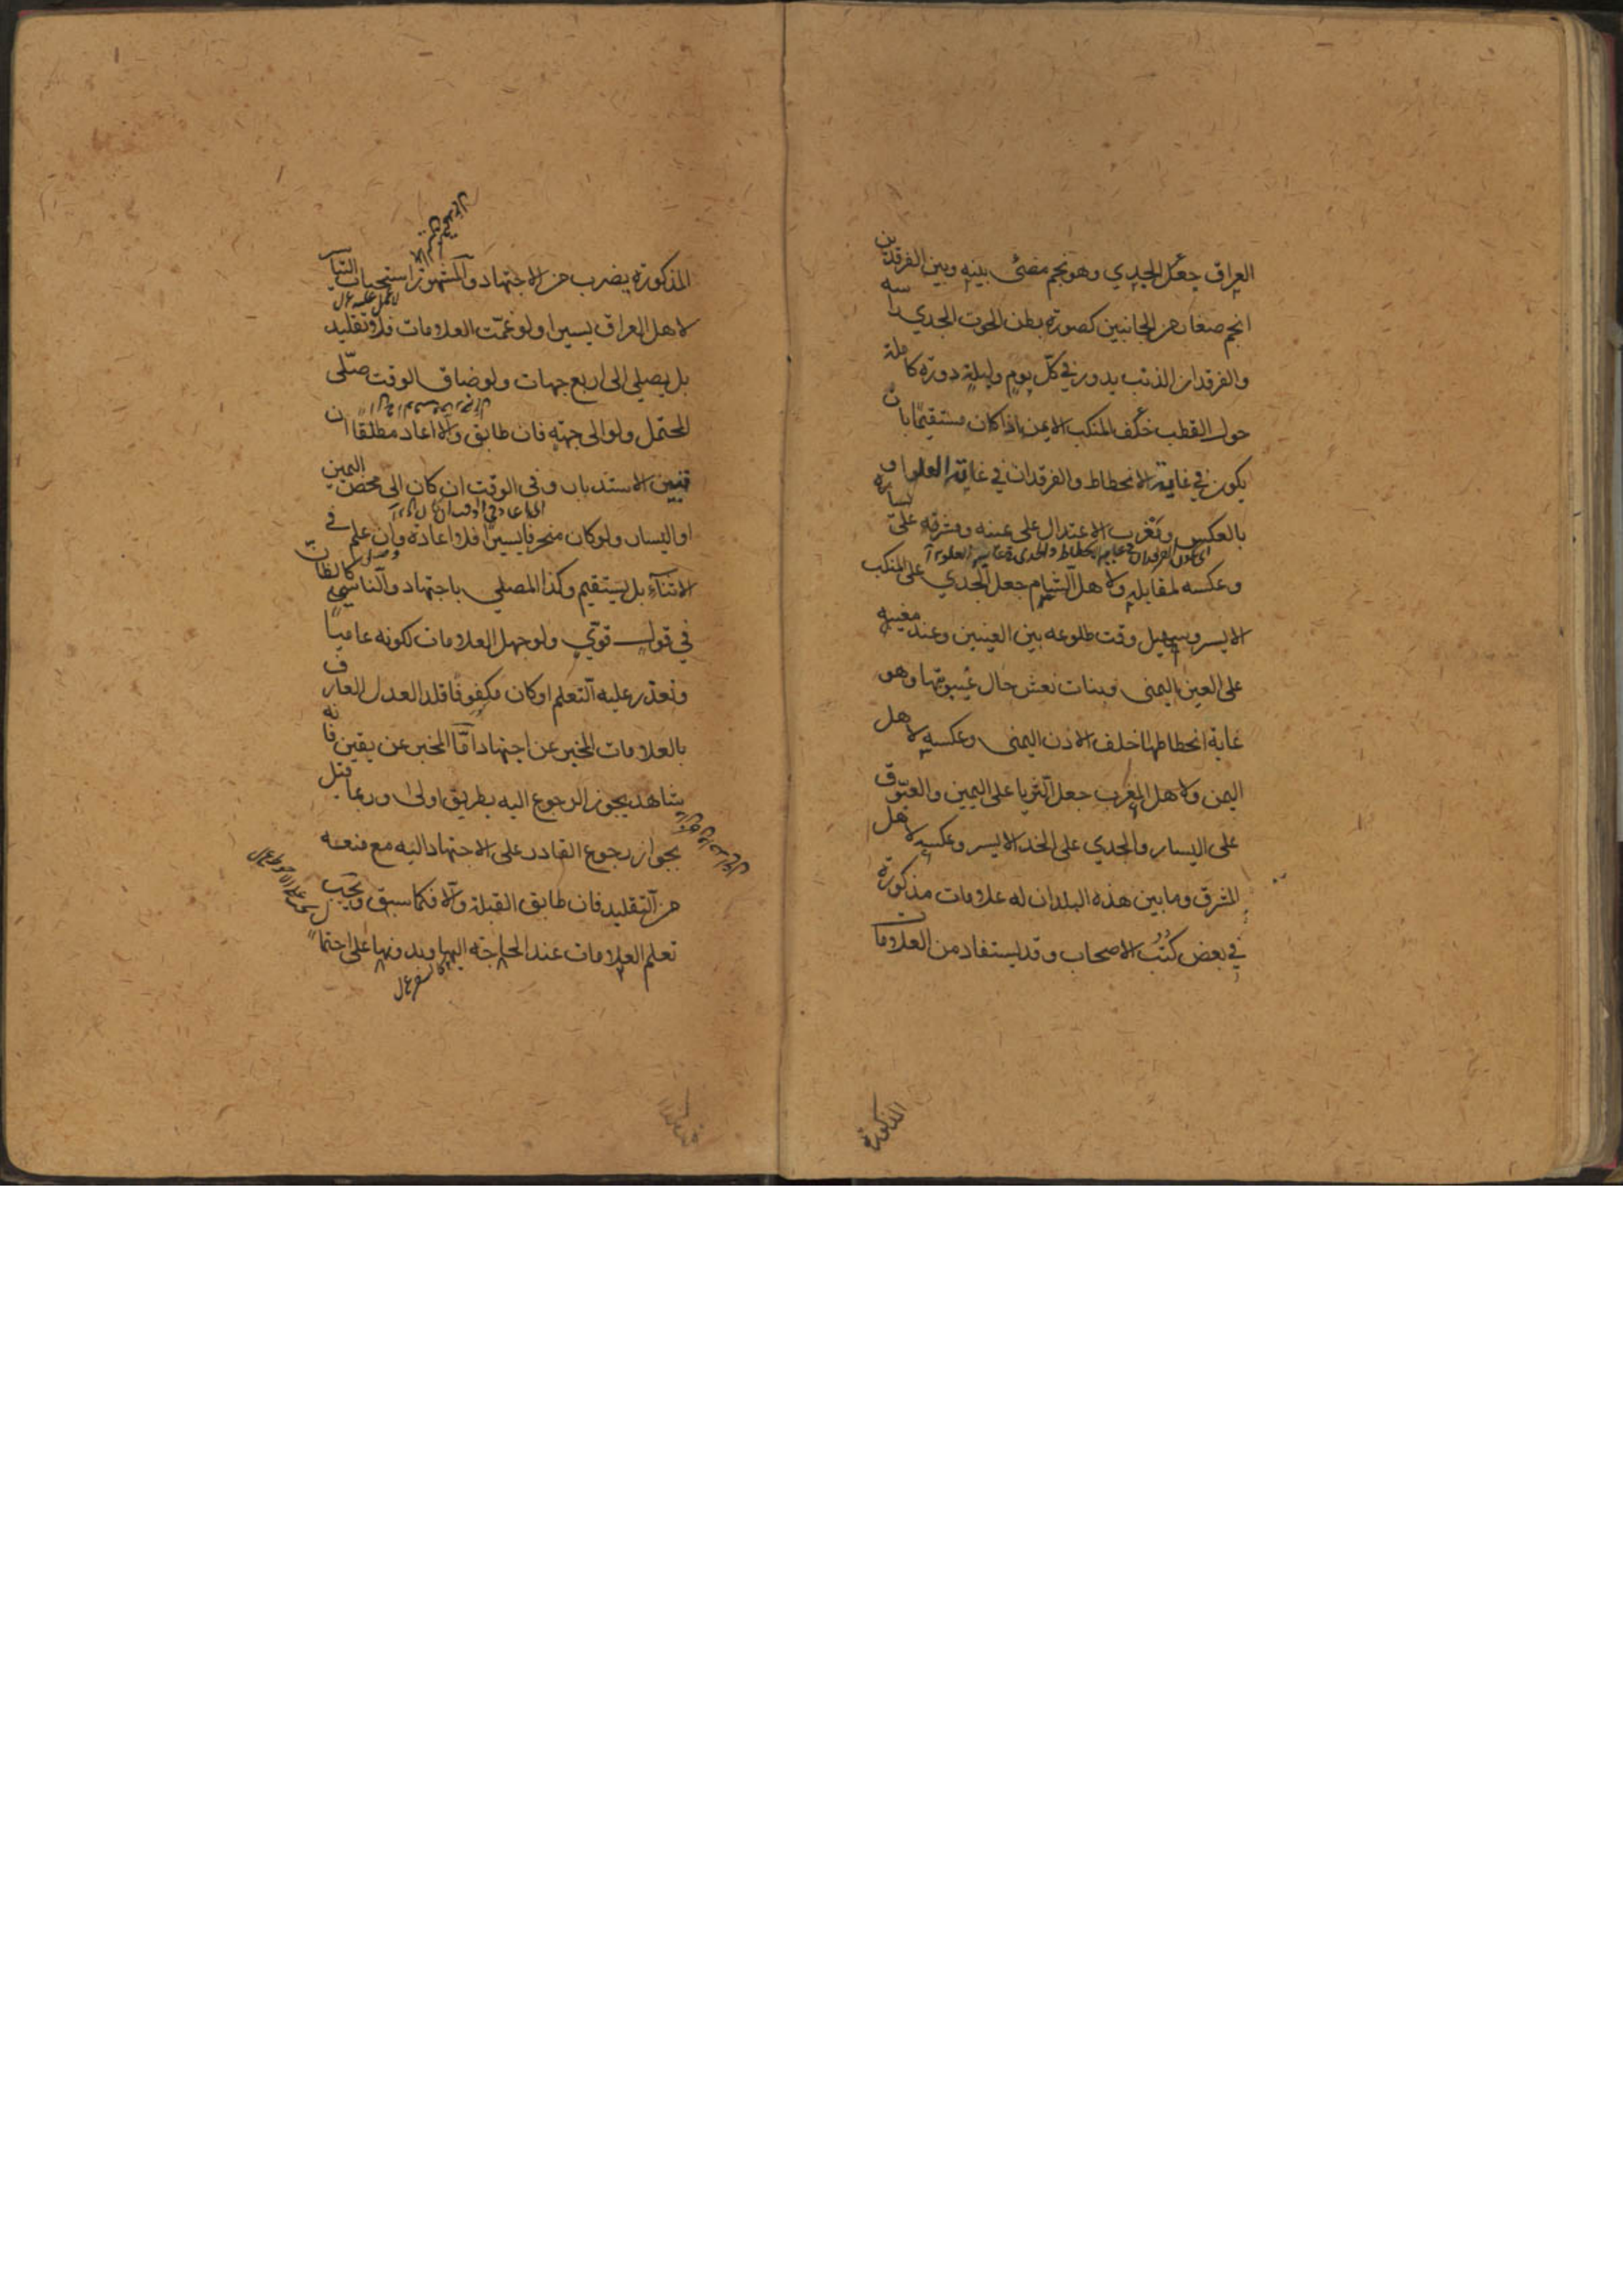 العراق جعل الجدي وهو نجم مضئ بينه وبين الفرقدين
انجم صغار من الجانبين كصورة بطن الحوت الجدي راسه
والفرقدان الذنب يدور في كل يوم وليلة دورة كاملة
حول القطب خلف المنكب الايمن اذا كان مستقيما بان
يكون في غاية الانحطاط والفرقدان في غاية العلو او
بالعكس ومغرب الاعتدال على يمينه ومشرقه على يساره
وعكسه لمقابله ولاهل الشام جعل الجدي على المنكب
الايسر وسهيل وقت طلوعه بين العينين وعند مغيبه
على العين اليمنى وبنات نعش حال غيبوبتها وهو
غاية انحطاطها خلف الاذن اليمنى وعكسه لاهل
اليمن ولاهل المغرب جعل الثريا على اليمين والعيّوق
على اليسار والجدي على الخد الايسر وعكسه لاهل
المشرق وما بين هذه البلدان له علامات مذكورة
في بعض كتب الاصحاب وقد يستفاد من العلامات
المذكورة
المذكورة بضرب من الاجتهاد والمشهور استحباب التياسر
لاهل العراق يسيرا ولو غمّت العلامات فلا تقليد
بل يصلي الى اربع جهات ولو ضاق الوقت صلّى
المحتمل ولو الى جهة فان طابق والا اعاد مطلقا ان
تبين الاستدبار وفي الوقت ان كان الى محض اليمين
او اليسار ولو كان منحرفا يسيرا فلا اعادة وان علم في
الاثناء بل يستقيم وكذا المصلي باجتهاد والناسي كالظان
في قول قوي ولو جهل العلامات لكونه عاميّاً
وتعذر عليه التعلم او كان مكفوفا قلد العدل العارف
بالعلامات المخبر عن اجتهاد امّا المخبر عن يقين فانه
شاهد يجوز الرجوع اليه بطريق اولى وربما قيل
بجواز رجوع القادر على الاجتهاد اليه مع منعه
من التقليد فان طابق القبلة والا فكما سبق ويجب
تعلم العلامات عند الحاجة اليها وبدونها على احتمال